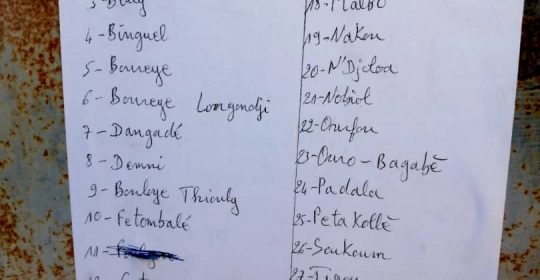 4 - Binguel
5 - Boureye
6 - Boureye Longondji
7 - Dangadé
8 - Demni
9 - Bouloye Thiouly
10 - Fetombalé
11 -
18 - Malbo
19 - Nakou
20 - N'Djoloa
21 - Nobiol
22 - Oufou
23 - Ouro - Bagabè
24 - Padala
25 - Peta Kollè
26 - Soukoum